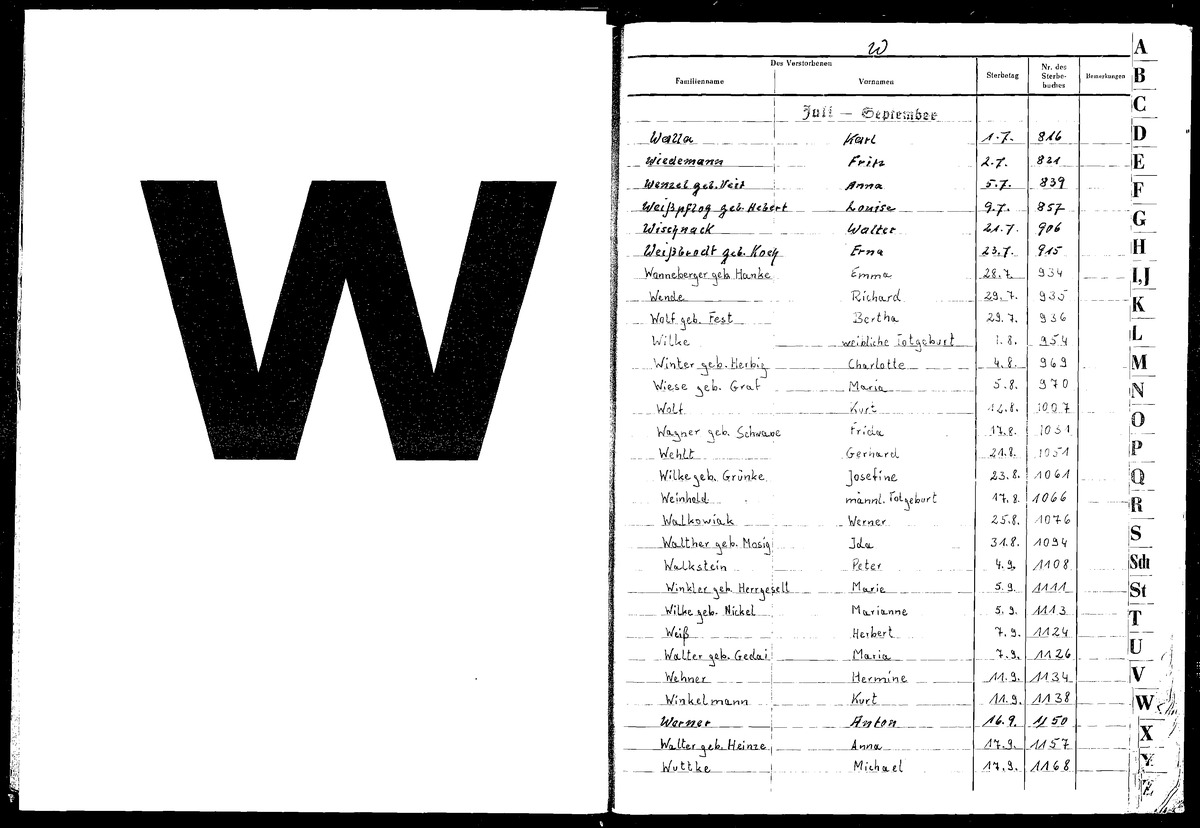 W
W
Des Verstorbenen
Familienname Vornamen Sterbetag Nr. des Sterbe-buches Bemerkungen
Juli — September
Walla Karl 1.7. 816
Wiedemann Fritz 2.7. 821
Wenzel geb. Veit Anna 5.7. 839
Weißpflog geb. Hebert Louise 9.7. 857
Wischnack Walter 21.7. 906
Weißbrodt geb. Koch Erna 23.7. 915
Wanneberger geb. Hanke Emma 28.7. 934
Wende Richard 29.7. 935
Wolf geb. Fest Bertha 29.7. 936
Wilke weibliche Totgeburt 1.8. 954
Winter geb. Herbig Charlotte 4.8. 969
Wiese geb. Graf Maria 5.8. 970
Wolf Kurt 12.8. 1007
Wagner geb. Schwabe Frida 17.8. 1031
Wehlt Gerhard 21.8. 1051
Wilke geb. Grünke Josefine 23.8. 1061
Weinhold männl. Totgeburt 17.8. 1066
Walkowiak Werner 25.8. 1076
Walther geb. Mosig Ida 31.8. 1094
Walkstein Peter 4.9. 1108
Winkler geb. Herrgesell Marie 5.9. 1111
Wilke geb. Nickel Marianne 5.9. 1113
Weiß Herbert 7.9. 1124
Walter geb. Gedai Maria 7.9. 1126
Wehner Hermine 11.9. 1134
Winkelmann Kurt 11.9. 1138
Werner Anton 16.9. 1150
Walter geb. Heinze Anna 17.9. 1157
Wuttke Michael 17.9. 1168
A
B
C
D
E
F
G
H
I,J
K
L
M
N
O
P
Q
R
S
Sch
St
T
U
V
W
X
Y
Z